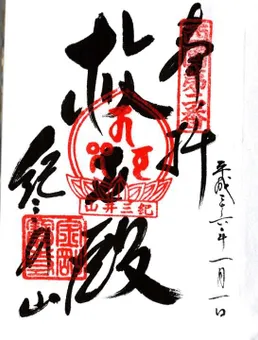 奉拝
西国第二番
平成二六年一月一日
救世殿
紀三井山
紀三井山